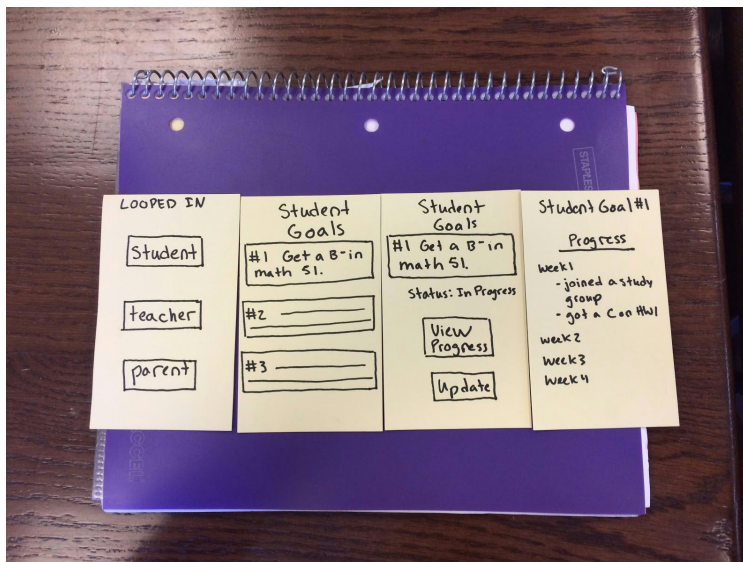 LOOPED IN
Student
teacher
parent
Student
Goals
#1 Get a B- in
math 51.
#2
#3
Student
Goals
#1 Get a B- in
math 51.
Status: In Progress
View
Progress
Update
Student Goal #1
Progress
Week 1
- joined a study
group
- got a C on HW1
week 2
Week 3
Week 4
STAPLES